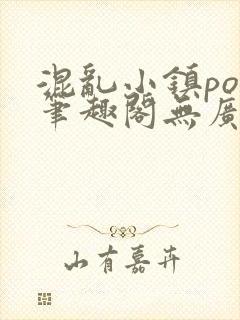 混亂小鎮po
筆趣閣無廣
山有嘉卉